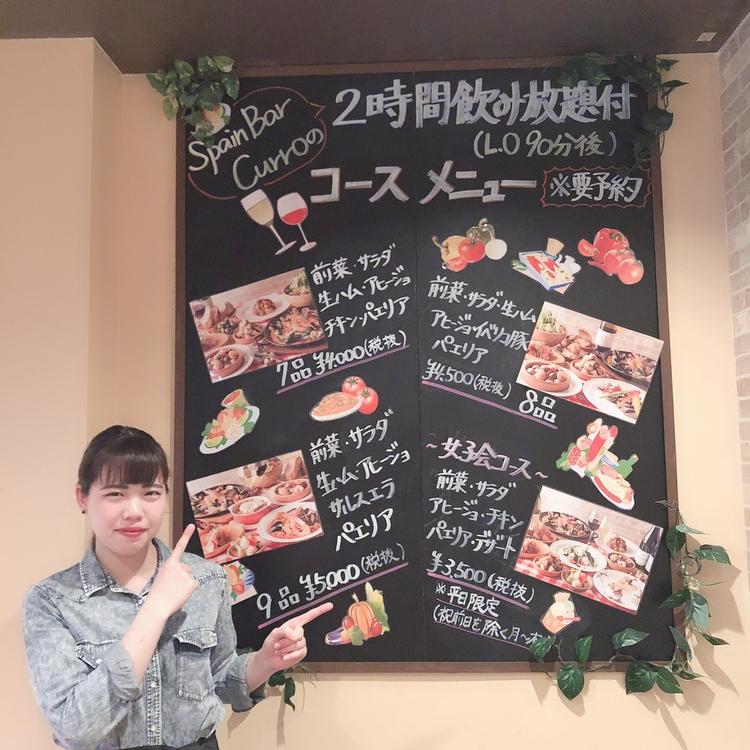 Spain Bar
Curroの
2時間飲み放題付
(L.O 90分後)
コース メニュー ※要予約
前菜・サラダ
生ハム・アヒージョ
チキン・パエリア
7品 ¥4,000(税抜)
前菜・サラダ・生ハム
アヒージョ・イベリコ豚
パエリア
¥4,500(税抜)
8品
前菜・サラダ
生ハム・アヒージョ
サルスエラ
パエリア
9品 ¥5,000(税抜)
~女子会コース~
前菜・サラダ
アヒージョ・チキン
パエリア・デザート
¥3,500(税抜)
※平日限定
(祝前日を除く月~木)